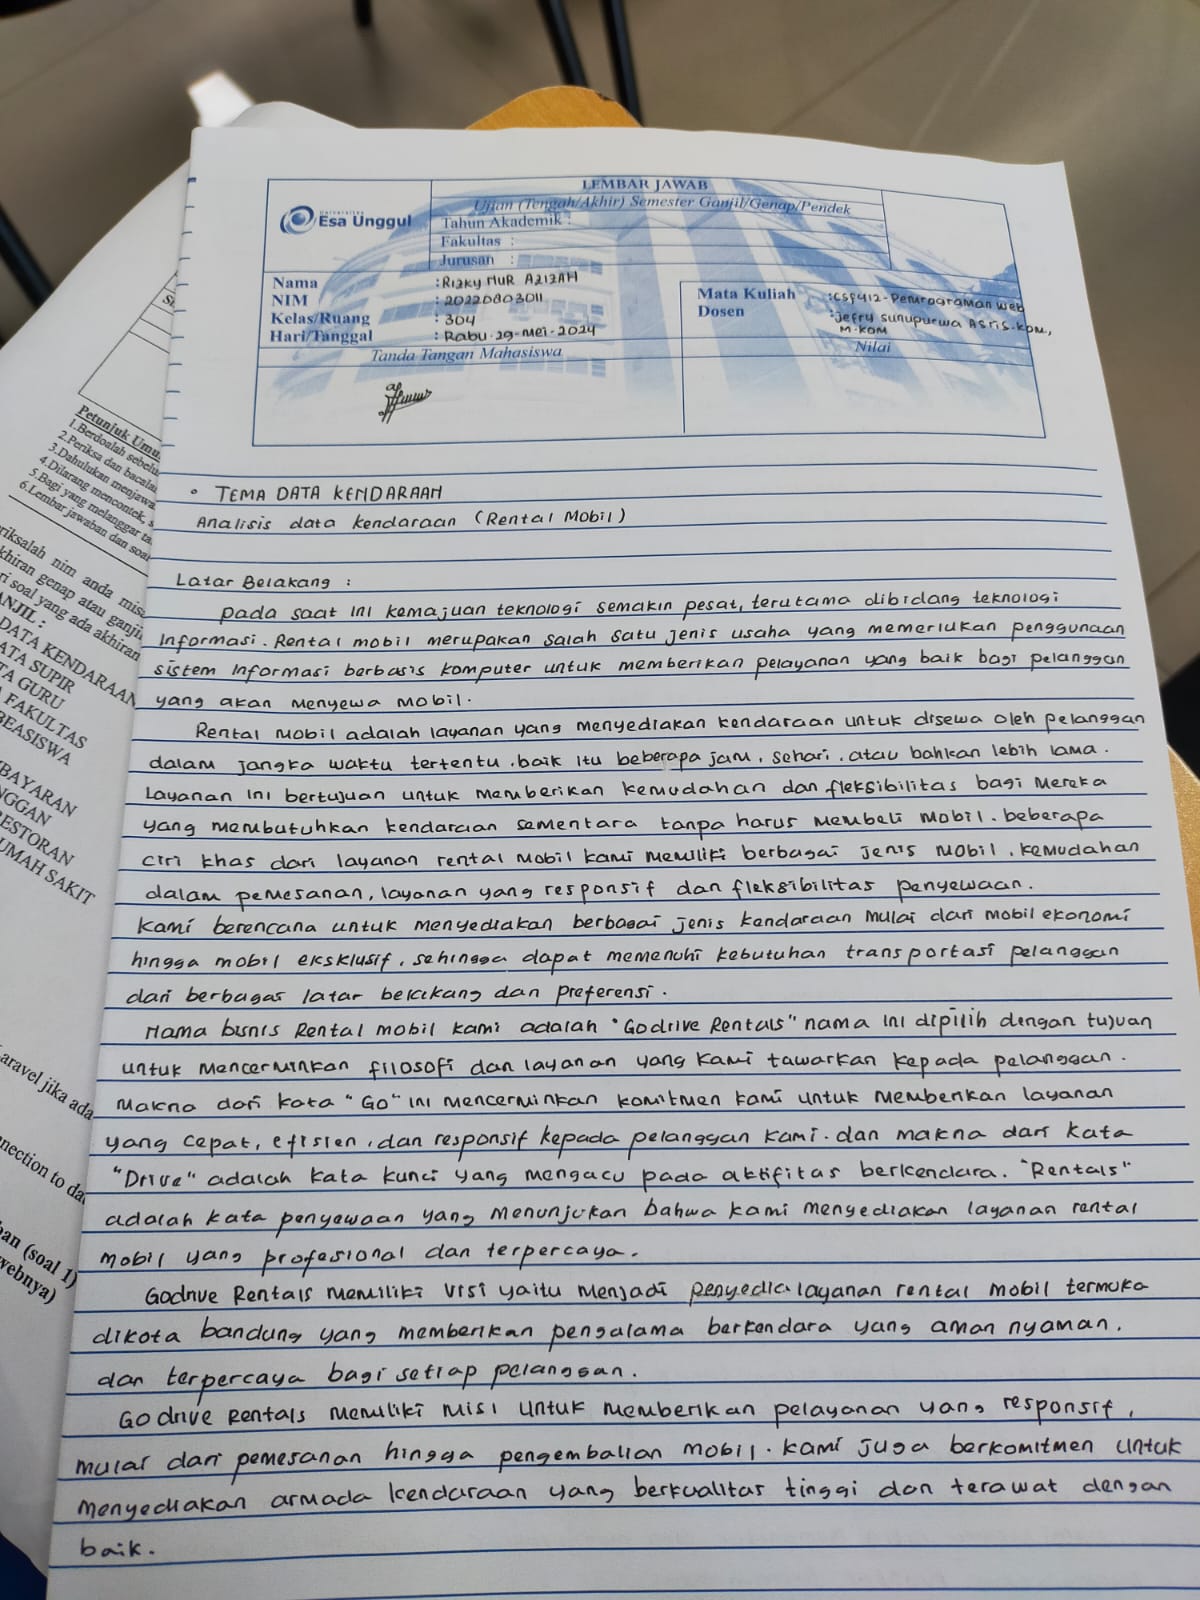 LEMBAR JAWAB
Ujian (Tengah/Akhir) Semester Ganjil/Genap/Pendek
Universitas
Esa Unggul
Tahun Akademik :
Fakultas :
Jurusan :
Nama : Rizky Nur Azizah
NIM : 20220803011
Kelas/Ruang : 304
Hari/Tanggal : Rabu. 29-Mei-2024
Mata Kuliah : CSF412-Pemrograman web
Dosen : Jefry Sunupurwa ASri S.kom,
M.kom
Tanda Tangan Mahasiswa
Nilai
Petunjuk Umu
1.Berdoalah sebelu
2.Periksa dan bacala
3.Dahulukan menjawa
4.Dilarang mencontek, s
5.Bagi yang melanggar ta
6.Lembar jawaban dan soa
riksalah nim anda mis
khiran genap atau ganji
ri soal yang ada akhiran
ANJIL :
DATA KENDARAAN
ATA SUPIR
TA GURU
FAKULTAS
BEASISWA
BAYARAN
NGGAN
RESTORAN
UMAH SAKIT
Laravel jika ada
nection to da
ban (soal 1)
webnya)
• TEMA DATA KENDARAAN
Analisis data kendaraan (Rental Mobil)
Latar Belakang :
pada saat ini kemajuan teknologi semakin pesat, terutama dibidang teknologi
Informasi. Rental mobil merupakan salah satu jenis usaha yang memerlukan penggunaan
sistem Informasi berbasis komputer untuk memberikan pelayanan yang baik bagi pelanggan
yang akan menyewa mobil.
Rental mobil adalah layanan yang menyediakan kendaraan untuk disewa oleh pelanggan
dalam jangka waktu tertentu, baik itu beberapa jam, sehari, atau bahkan lebih lama.
Layanan ini bertujuan untuk memberikan kemudahan dan fleksibilitas bagi mereka
yang membutuhkan kendaraan sementara tanpa harus membeli mobil. beberapa
ciri khas dari layanan rental mobil kami memiliki berbagai jenis mobil, kemudahan
dalam pemesanan, layanan yang responsif dan fleksibilitas penyewaan.
Kami berencana untuk menyediakan berbagai jenis kendaraan mulai dari mobil ekonomi
hingga mobil eksklusif, sehingga dapat memenuhi kebutuhan transportasi pelanggan
dari berbagas latar belakang dan preferensi.
Nama bisnis Rental mobil kami adalah "Godrive Rentals" nama ini dipilih dengan tujuan
untuk mencerminkan filosofi dan layanan yang kami tawarkan kepada pelanggan.
Makna dari kata "Go" ini mencerminkan komitmen kami untuk memberikan layanan
yang cepat, efisien, dan responsif kepada pelanggan kami. dan makna dari kata
"Drive" adalah kata kunci yang mengacu pada aktifitas berkendara. "Rentals"
adalah kata penyewaan yang menunjukan bahwa kami menyediakan layanan rental
mobil yang profesional dan terpercaya.
Godrive Rentals memiliki visi yaitu menjadi penyedia layanan rental mobil termuka
dikota bandung yang memberikan pengalama berkendara yang aman nyaman,
dan terpercaya bagi setiap pelanggan.
Godrive Rentals memiliki misi untuk memberikan pelayanan yang responsif,
mulai dari pemesanan hingga pengembalian mobil. kami juga berkomitmen untuk
menyediakan armada kendaraan yang berkualitas tinggi dan terawat dengan
baik.